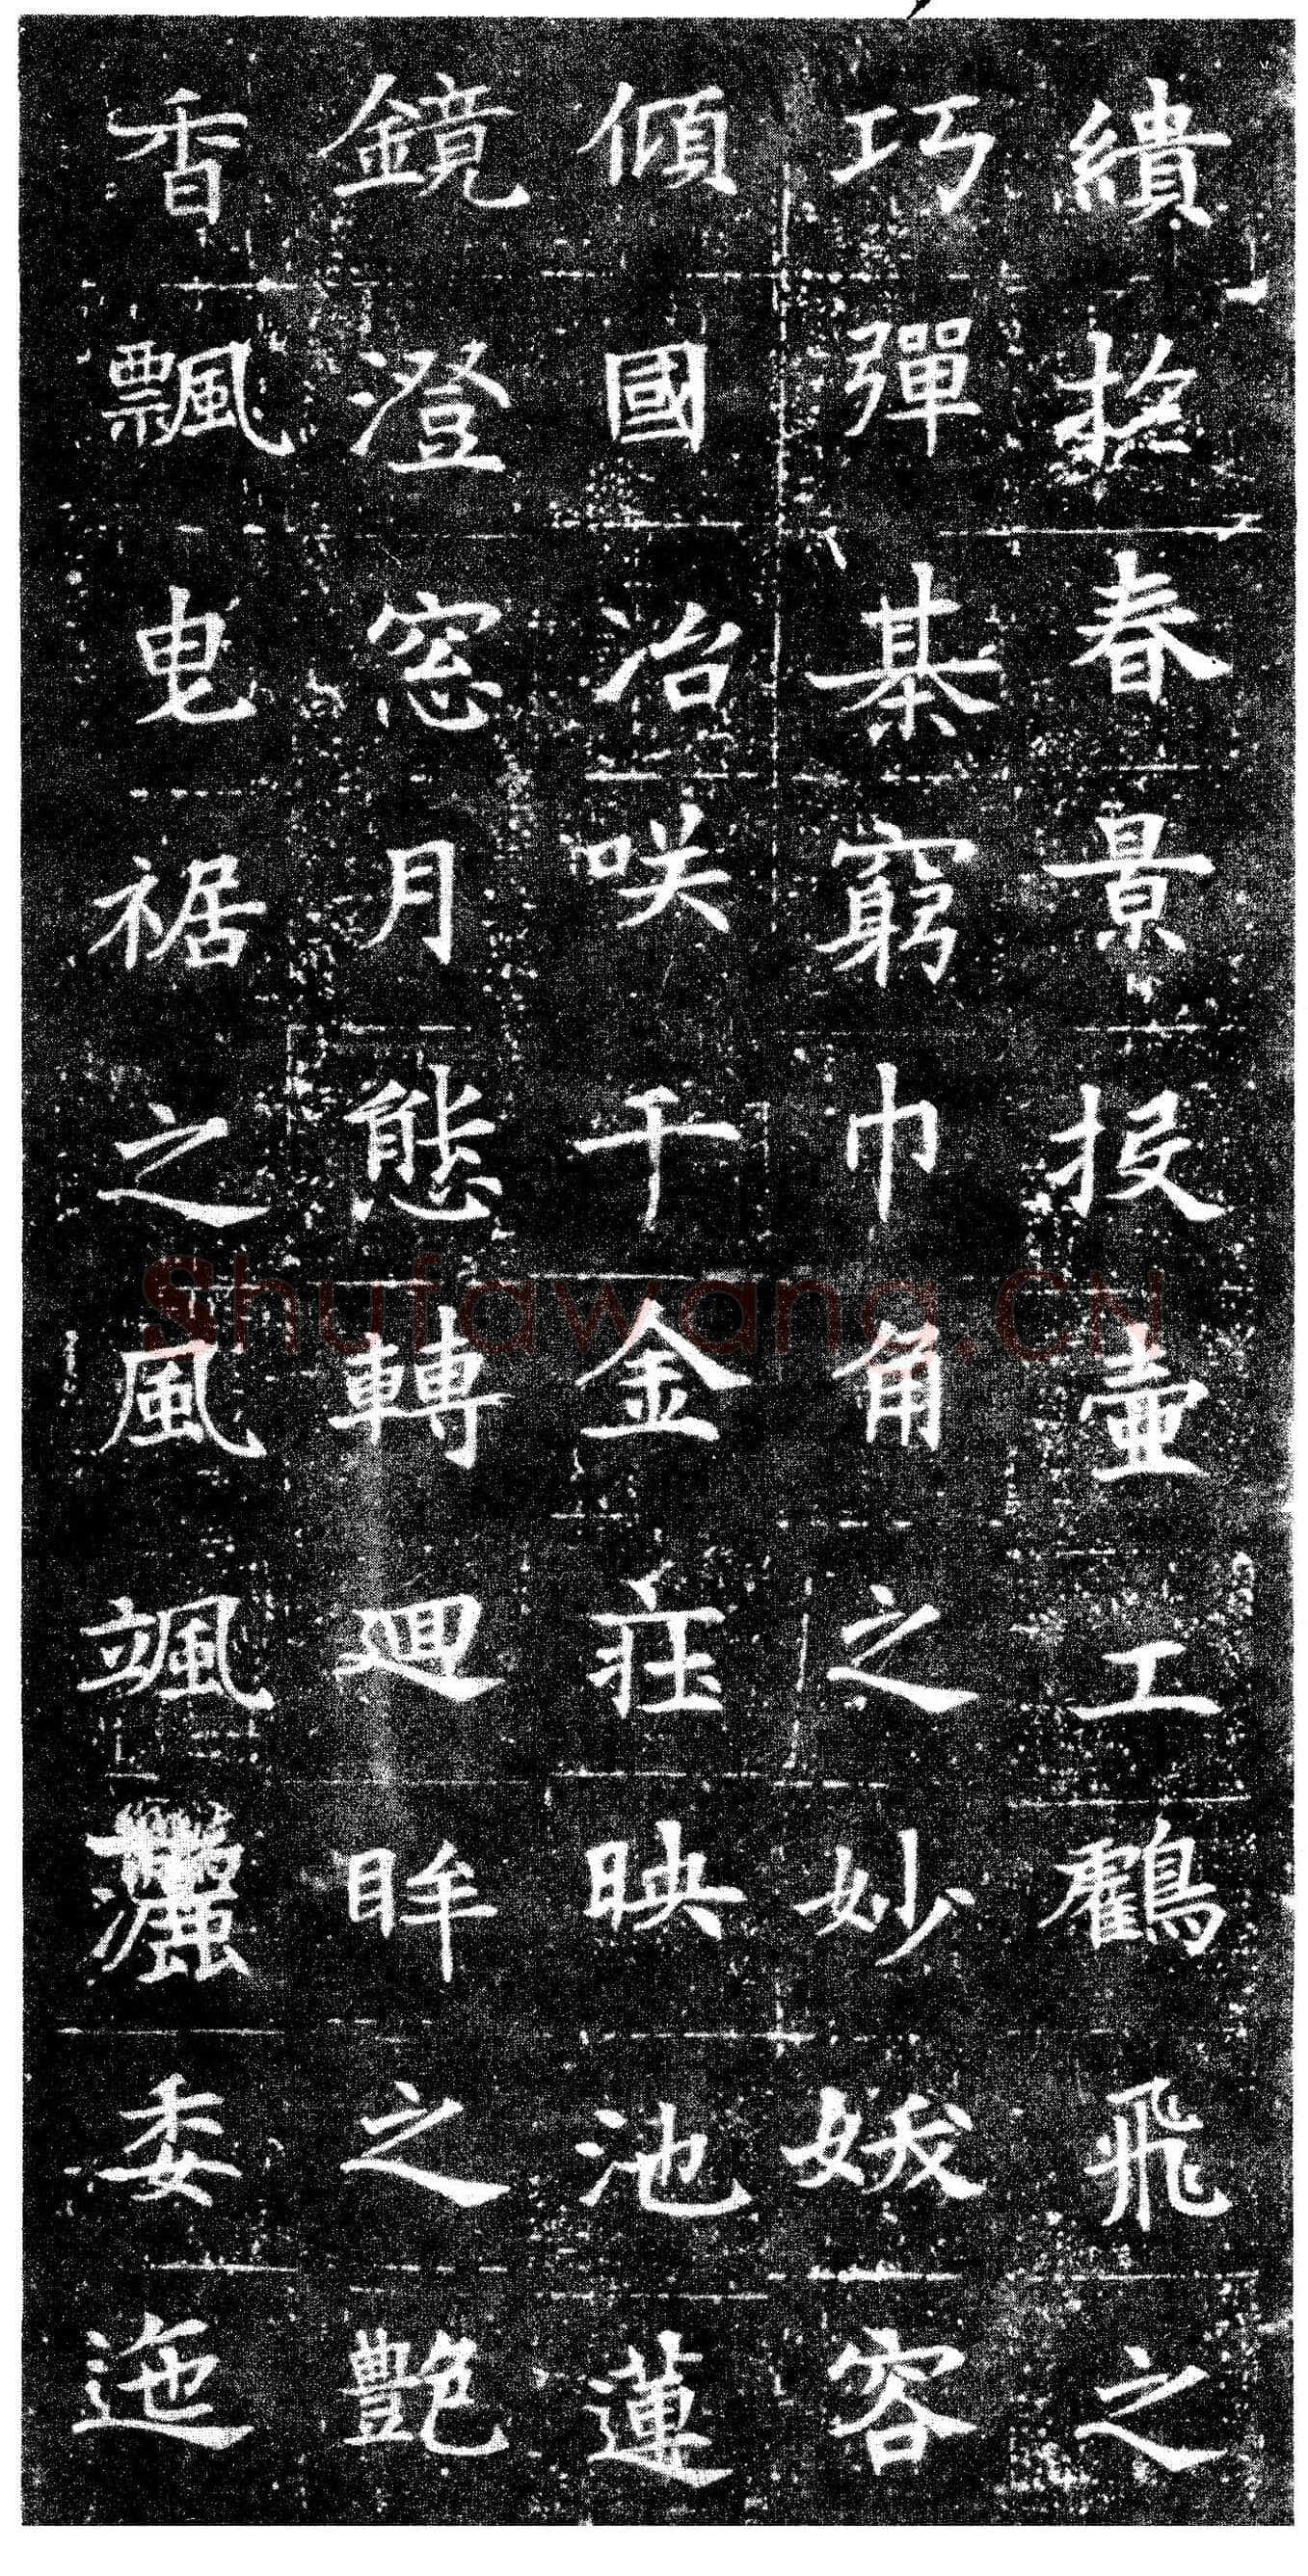 繢搖春景投壺工鸛飛之
巧彈棊窮巾角之妙妖容
傾國冶咲千金莊映池蓮
鏡澄窓月態轉廻眸之艷
香飄曳裾之風颯灑委迤
Shufawang.CN